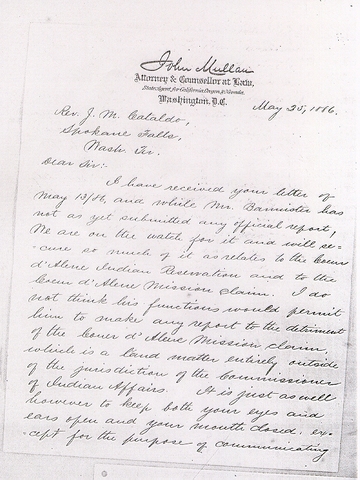 John Mullan
Attorney & Counsellor at Law,
State Agent for California, Oregon, & Nevada,
Washington, D.C.
May 25, 1886.
Rev. J. M. Cataldo,
Spokane Falls,
Wash Ter.
Dear Sir:-
I have received your letter of
May 13/86, and while Mr. Bannister has
not as yet submitted any official report,
We are on the watch for it and will se-
-cure so much of it as relates to the Coeur
d'Alene Indian Reservation and to the
Coeur d'Alene Mission claim. I do
not think his functions would permit
him to make any report to the detriment
of the Coeur d'Alene Mission claim
which is a land matter entirely outside
of the jurisdiction of the Commissioner
of Indian Affairs. It is just as well
however to keep both your eyes and
ears open and your mouth closed, ex-
-cept for the purpose of communicating